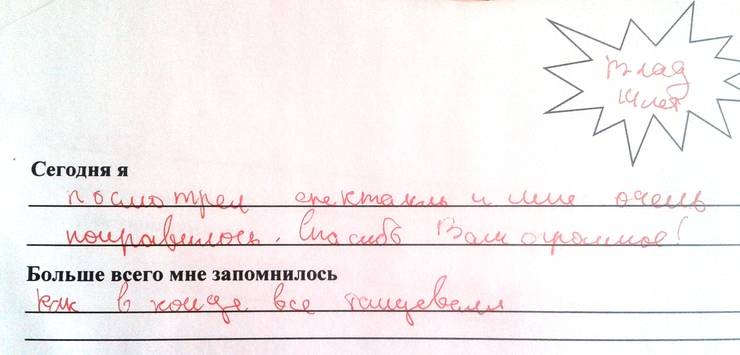 Влад
14 лет
Сегодня я
посмотрел спектакль и мне очень
понравилось. Спасибо Вам огромное!
Больше всего мне запомнилось
как в конце все танцевали